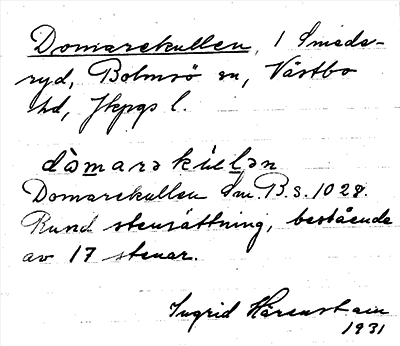 Domarekullen, 1 Smeds-
ryd, Bolmsö sn, Västbo
hd, Jkpgs l.
dⱥ̀marəkúllən
Domarekullen Sm. B. s. 1028.
Rund stensättning, bestående
av 17 stenar.
Ingrid Härenstam
1931